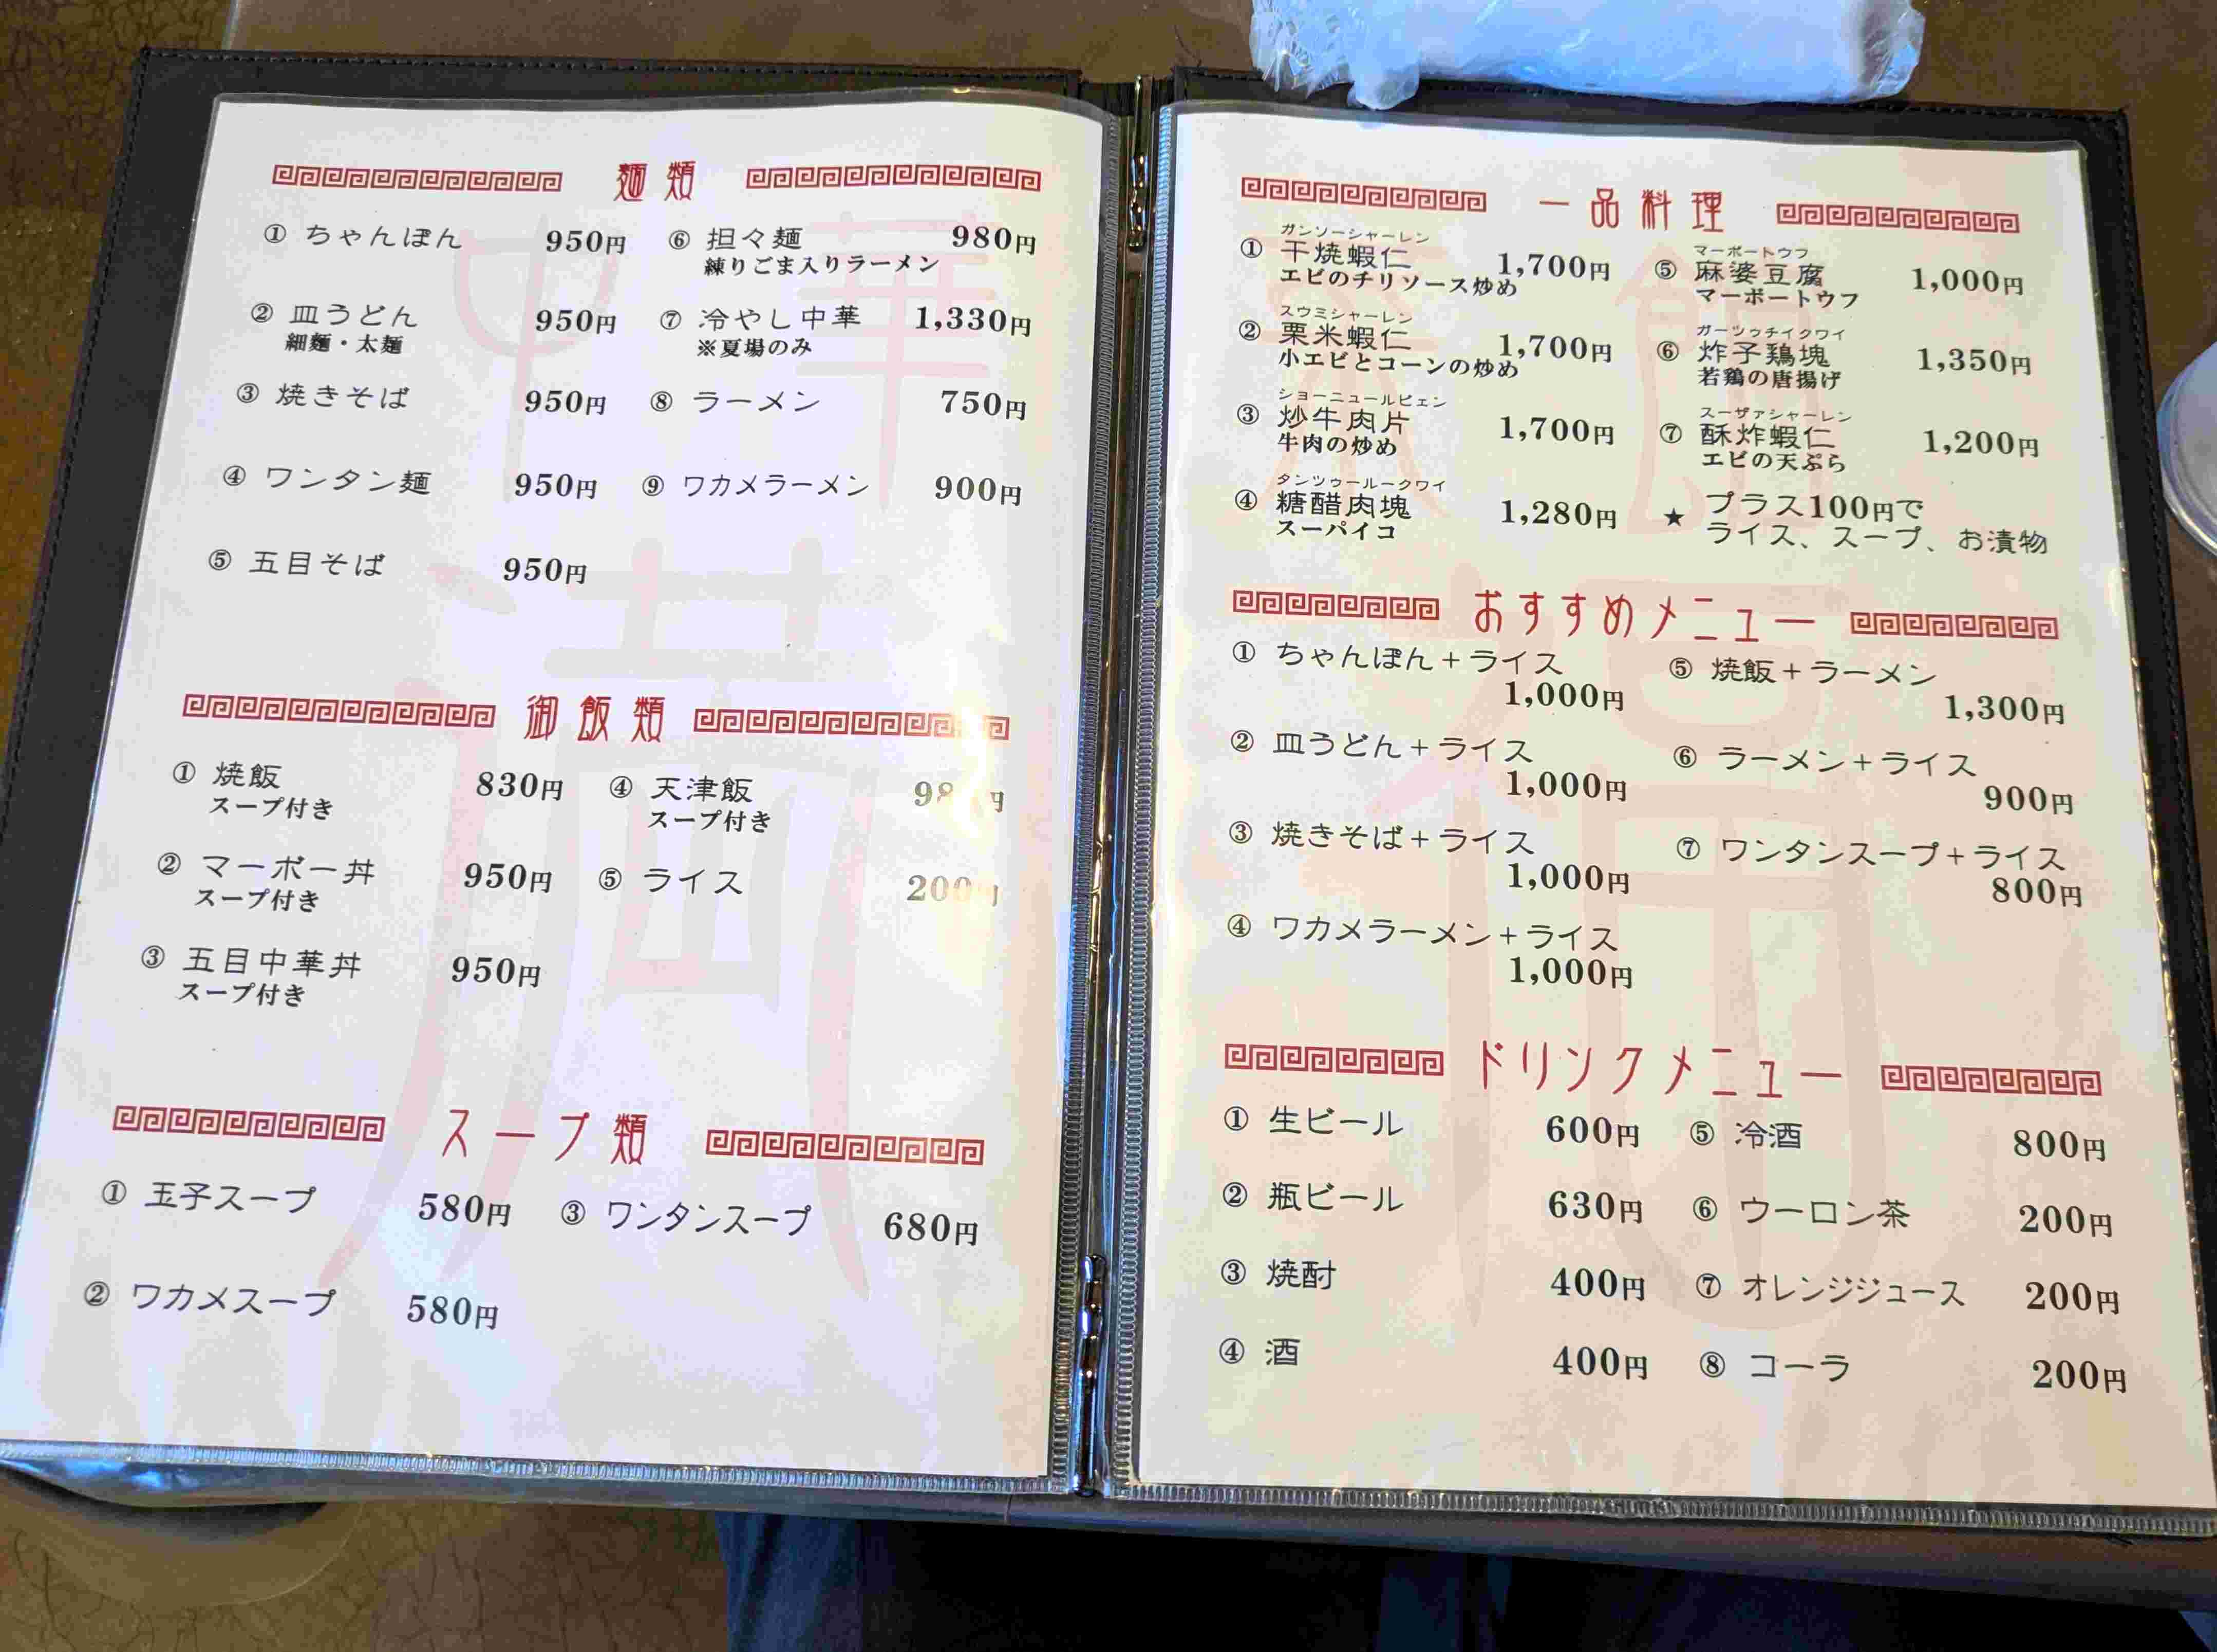 麺類
① ちゃんぽん 950円
② 皿うどん 950円
細麺・太麺
③ 焼きそば 950円
④ ワンタン麺 950円
⑤ 五目そば 950円
⑥ 担々麺 980円
練りごま入りラーメン
⑦ 冷やし中華 1,330円
※夏場のみ
⑧ ラーメン 750円
⑨ ワカメラーメン 900円
御飯類
① 焼飯 830円
スープ付き
② マーボー丼 950円
スープ付き
③ 五目中華丼 950円
スープ付き
④ 天津飯
スープ付き
⑤ ライス 200円
スープ類
① 玉子スープ 580円
② ワカメスープ 580円
③ ワンタンスープ 680円
一品料理
ガンソーシャーレン
① 干焼蝦仁 1,700円
エビのチリソース炒め
スウミシャーレン
② 栗米蝦仁 1,700円
小エビとコーンの炒め
ショーニュールピェン
③ 炒牛肉片 1,700円
牛肉の炒め
タンツゥールークワイ
④ 糖醋肉塊 1,280円
スーパイコ
マーボートウフ
⑤ 麻婆豆腐 1,000円
マーボートウフ
ガーツゥチイクワイ
⑥ 炸子鶏塊 1,350円
若鶏の唐揚げ
スーザァシャーレン
⑦ 酥炸蝦仁 1,200円
エビの天ぷら
★ プラス100円で
ライス、スープ、お漬物
おすすめメニュー
① ちゃんぽん+ライス
1,000円
② 皿うどん+ライス
1,000円
③ 焼きそば+ライス
1,000円
④ ワカメラーメン+ライス
1,000円
⑤ 焼飯+ラーメン
1,300円
⑥ ラーメン+ライス
900円
⑦ ワンタンスープ+ライス
800円
ドリンクメニュー
① 生ビール 600円
② 瓶ビール 630円
③ 焼酎 400円
④ 酒 400円
⑤ 冷酒 800円
⑥ ウーロン茶 200円
⑦ オレンジジュース 200円
⑧ コーラ 200円